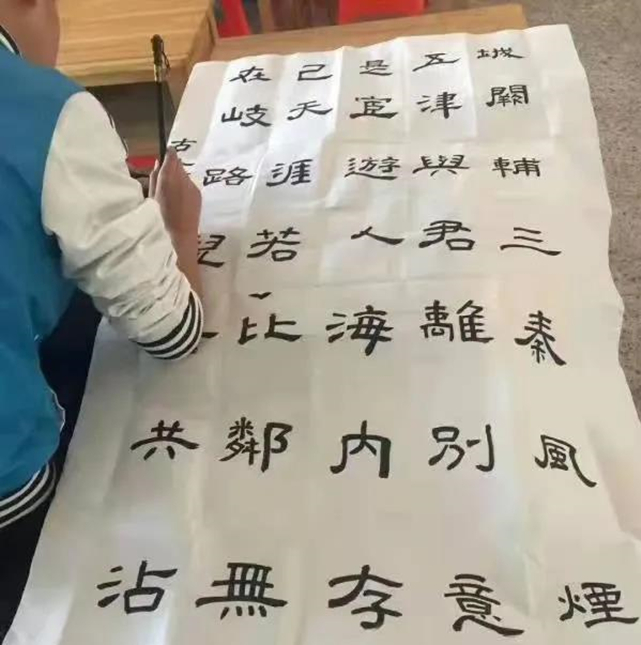 城闕輔三秦風煙
五津與君離別意
是宦遊人海内存
己天涯若比鄰無
在岐路兒共沾
古